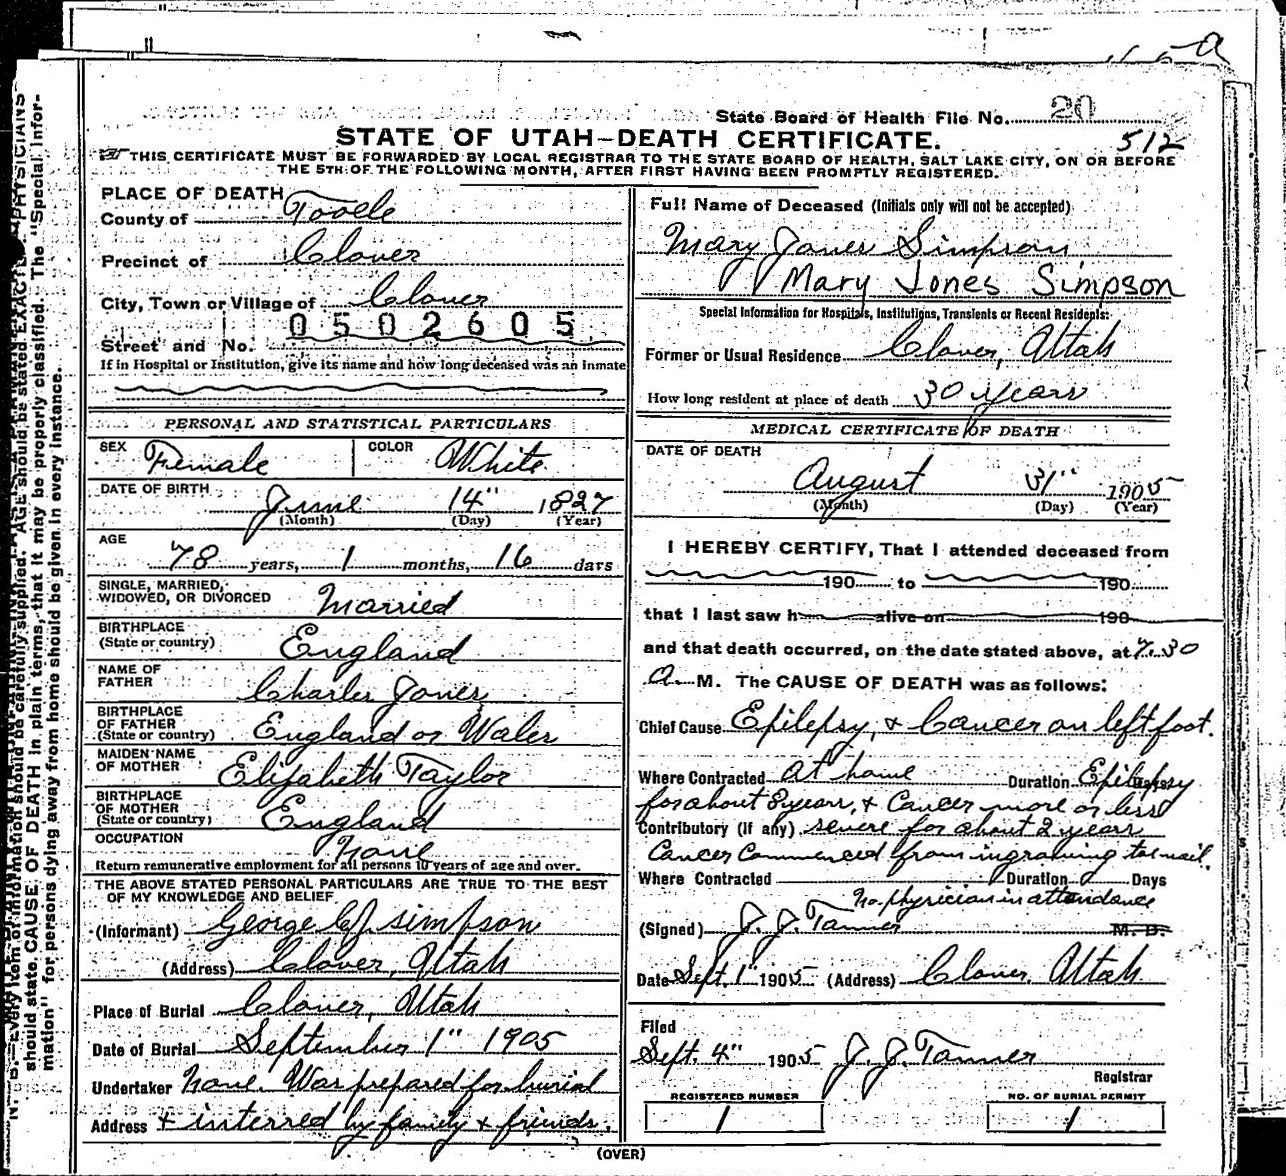 State Board of Health File No. 20
512
STATE OF UTAH—DEATH CERTIFICATE.
THIS CERTIFICATE MUST BE FORWARDED BY LOCAL REGISTRAR TO THE STATE BOARD OF HEALTH, SALT LAKE CITY, ON OR BEFORE
THE 5TH OF THE FOLLOWING MONTH, AFTER FIRST HAVING BEEN PROMPTLY REGISTERED.
PLACE OF DEATH
County of Tooele
Precinct of Clover
City, Town or Village of Clover
0502605
Street and No.
If in Hospital or Institution, give its name and how long deceased was an inmate
PERSONAL AND STATISTICAL PARTICULARS
SEX Female COLOR White
DATE OF BIRTH June 14" 1827
(Month) (Day) (Year)
AGE
78 years, 1 months, 16 days
SINGLE, MARRIED,
WIDOWED, OR DIVORCED Married
BIRTHPLACE
(State or country) England
NAME OF
FATHER Charles Jones
BIRTHPLACE
OF FATHER
(State or country) England or Wales
MAIDEN NAME
OF MOTHER Elizabeth Taylor
BIRTHPLACE
OF MOTHER
(State or country) England
OCCUPATION None
Return remunerative employment for all persons 10 years of age and over.
THE ABOVE STATED PERSONAL PARTICULARS ARE TRUE TO THE BEST
OF MY KNOWLEDGE AND BELIEF
(Informant) George Simpson
(Address) Clover, Utah
Place of Burial Clover, Utah
Date of Burial September 1" 1905
Undertaker None. Was prepared for burial
Address & interred by family & friends.
Full Name of Deceased (Initials only will not be accepted)
Mary Jones Simpson
Mary Jones Simpson
Special Information for Hospitals, Institutions, Transients or Recent Residents:
Former or Usual Residence Clover, Utah
How long resident at place of death 30 years
MEDICAL CERTIFICATE OF DEATH
DATE OF DEATH
August 31" 1905
(Month) (Day) (Year)
I HEREBY CERTIFY, That I attended deceased from
190 to 190
that I last saw h alive on 190
and that death occurred, on the date stated above, at 7.30
A. M. The CAUSE OF DEATH was as follows:
Chief Cause Epilepsy, & Cancer on left foot.
Where Contracted at home Duration Epilepsy
for about 8 years, & Cancer more or less
Contributory (if any) severe for about 2 years
Cancer Commenced from ingrowing toe nail.
Where Contracted Duration Days
No physician in attendance
(Signed) J. J. Tanner M. D.
Date Sept. 1" 1905 (Address) Clover, Utah
Filed
Sept. 4" 1905 J. J. Tanner
Registrar
REGISTERED NUMBER
1
NO. OF BURIAL PERMIT
1
(OVER)
should state CAUSE OF DEATH in plain terms, that it may be properly classified. The "Special Infor-
mation" for persons dying away from home should be given in every instance.